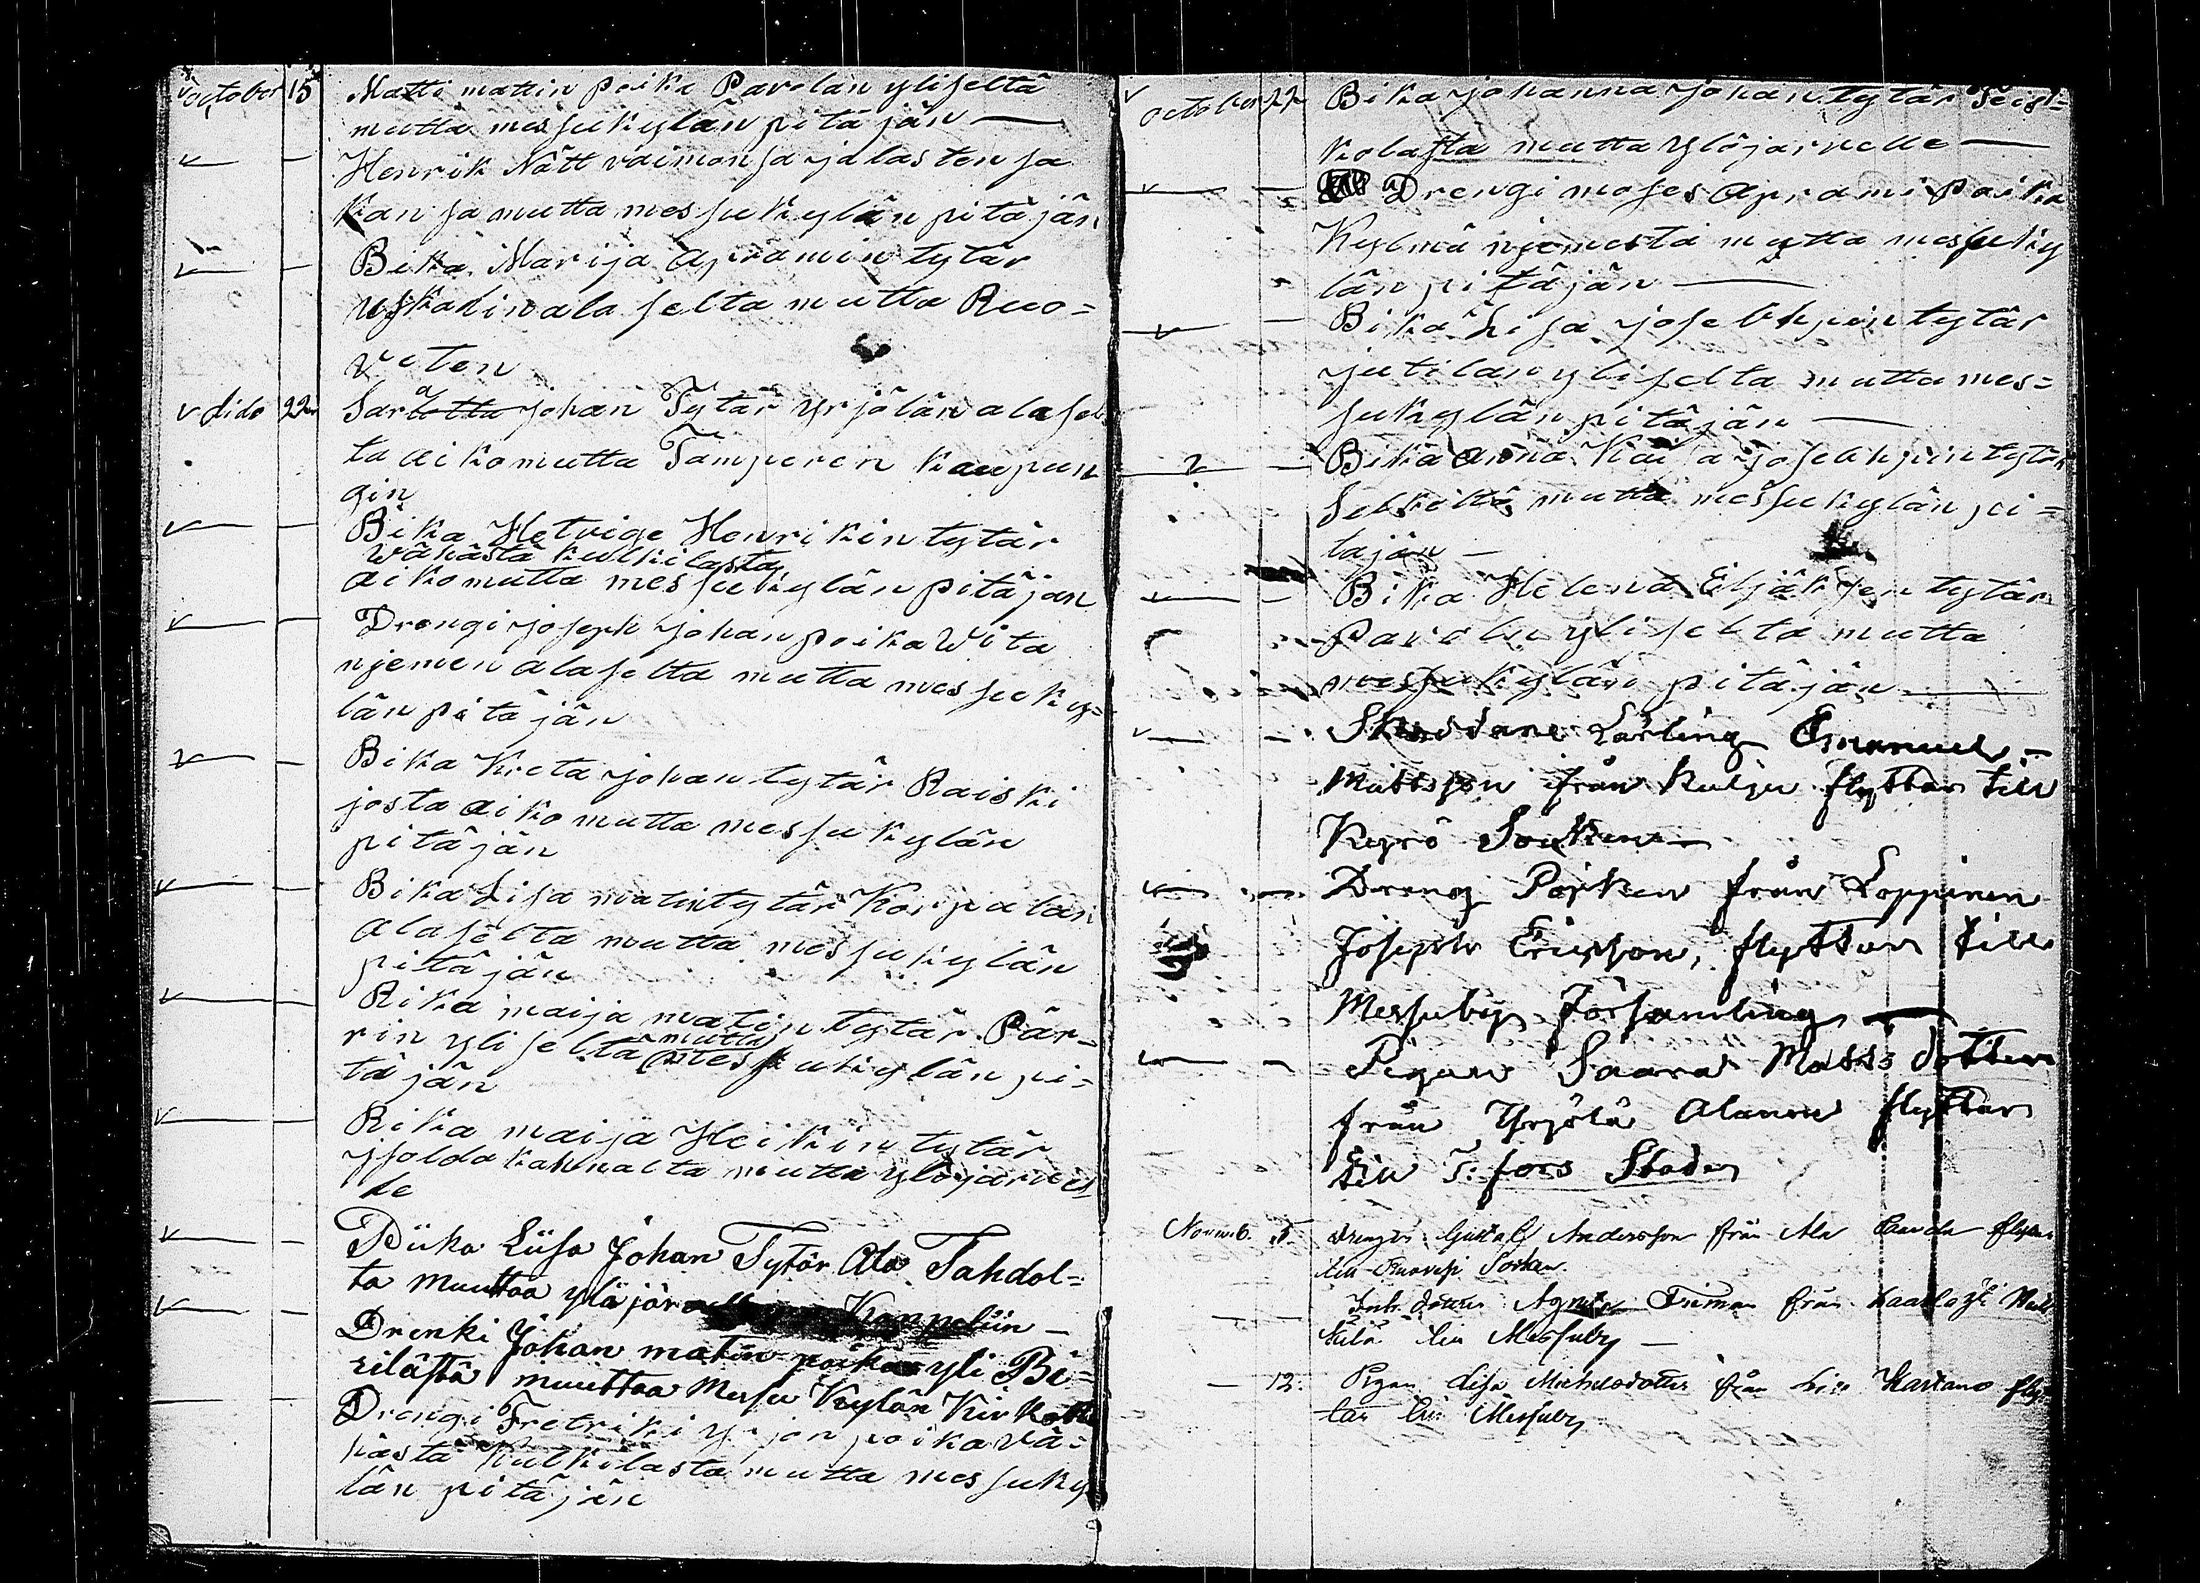 october 15 Matti mattin poika Parolan yliseltä
mutta messukylän pitäjän
Henrik Nätt vaimonsa ja lasten sa
kansa mutta messukylän pitäjän
Bika Marija apramin tytär
Uskalin alaselta mutta Ruo=
veten
dido 22 Sara johan Tytär yrjölän alasel
ta aikomutta Tamperen kaupun
gin
Bika Hetvige Henrikin tytär
Wähästä kulkilasta
aikomutta messukylän pitäjän
Drengi joseph johan poika Wita
njemen alaselta mutta messuky=
län pitäjän
Bika Kreta johan tytär Raiski
josta aikomutta messukylän
pitäjän
Bika Lisa matintytär Korpalan
alaselta mutta messukylän
pitäjän
Bika maija matin tytär Pär=
rin yliseltä mutta messukylän pi=
täjän
Bika maija Heikin tytär
mutta ylöjärvel
le
Piika Liisa Johan Tytär Ala Tahdol=
ta muuttaa Kanpeliin
Drenki Johan matin poika yli Bi=
rilästä muuttaa Messu Kylän
Drengi Fretriki yrjön poika Vä=
hästä Kulkilasta mutta messuky
län pitäjän
october 22 Bika johanna johan tytär Teis=
kolasta mutta ylöjärvelle
Drengi moses aprami Poika
Kylmä njemestä mutta messuky
län pitäjän
Bika Lisa josebhpin tytär
jutilan yliselta mutta mes=
sukylän pitäjän
Bika anna Kaisa josebhpin tytär
Selkältä mutta messukylän pi=
täjän
Bika Helena Eljäksen tytär
Parolan yliselta mutta
messukylän pitäjän
Lärling Emanuel
Mattsson från Kulju flyttar till
Kyrö Socken
Dreng Pojken från Loppinen
Joseph Ericsson, flyttar till
Messuby Församling
Pigan Saara Matts dotter
från Yrjölä Alanen flyttar
till T:fors Stad
Novemb. 5. Drengen Gustaf Andersson från Ala
till Socken
Agneta från
kilä till Messuby
12. Pigan Lisa Michelsdotter från Kartano flyt
tar till Messuby